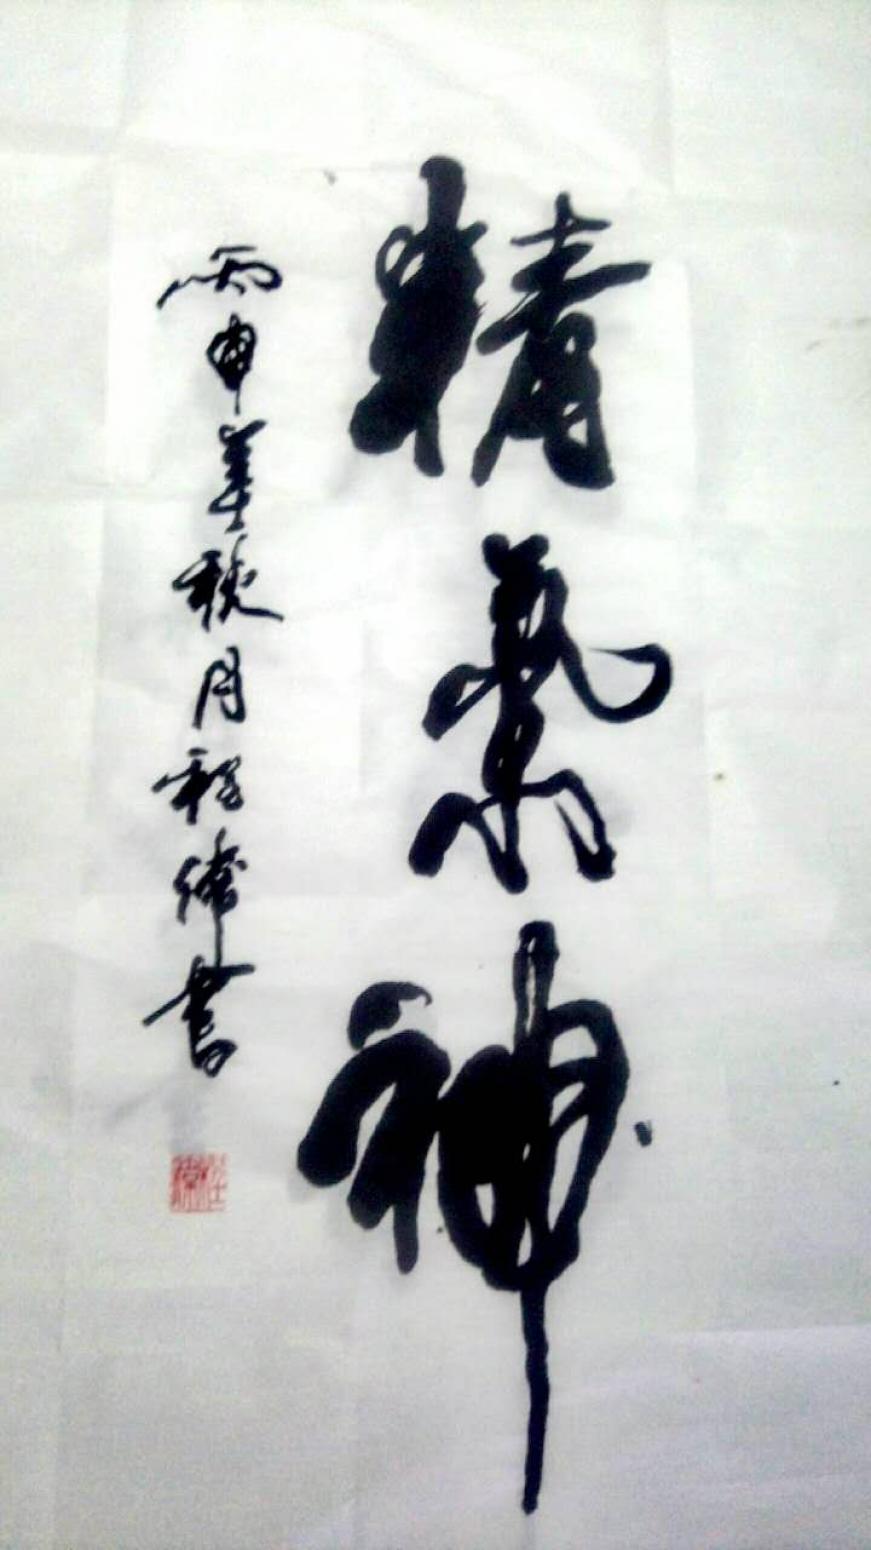 精氣神
丙申年秋月程偉書